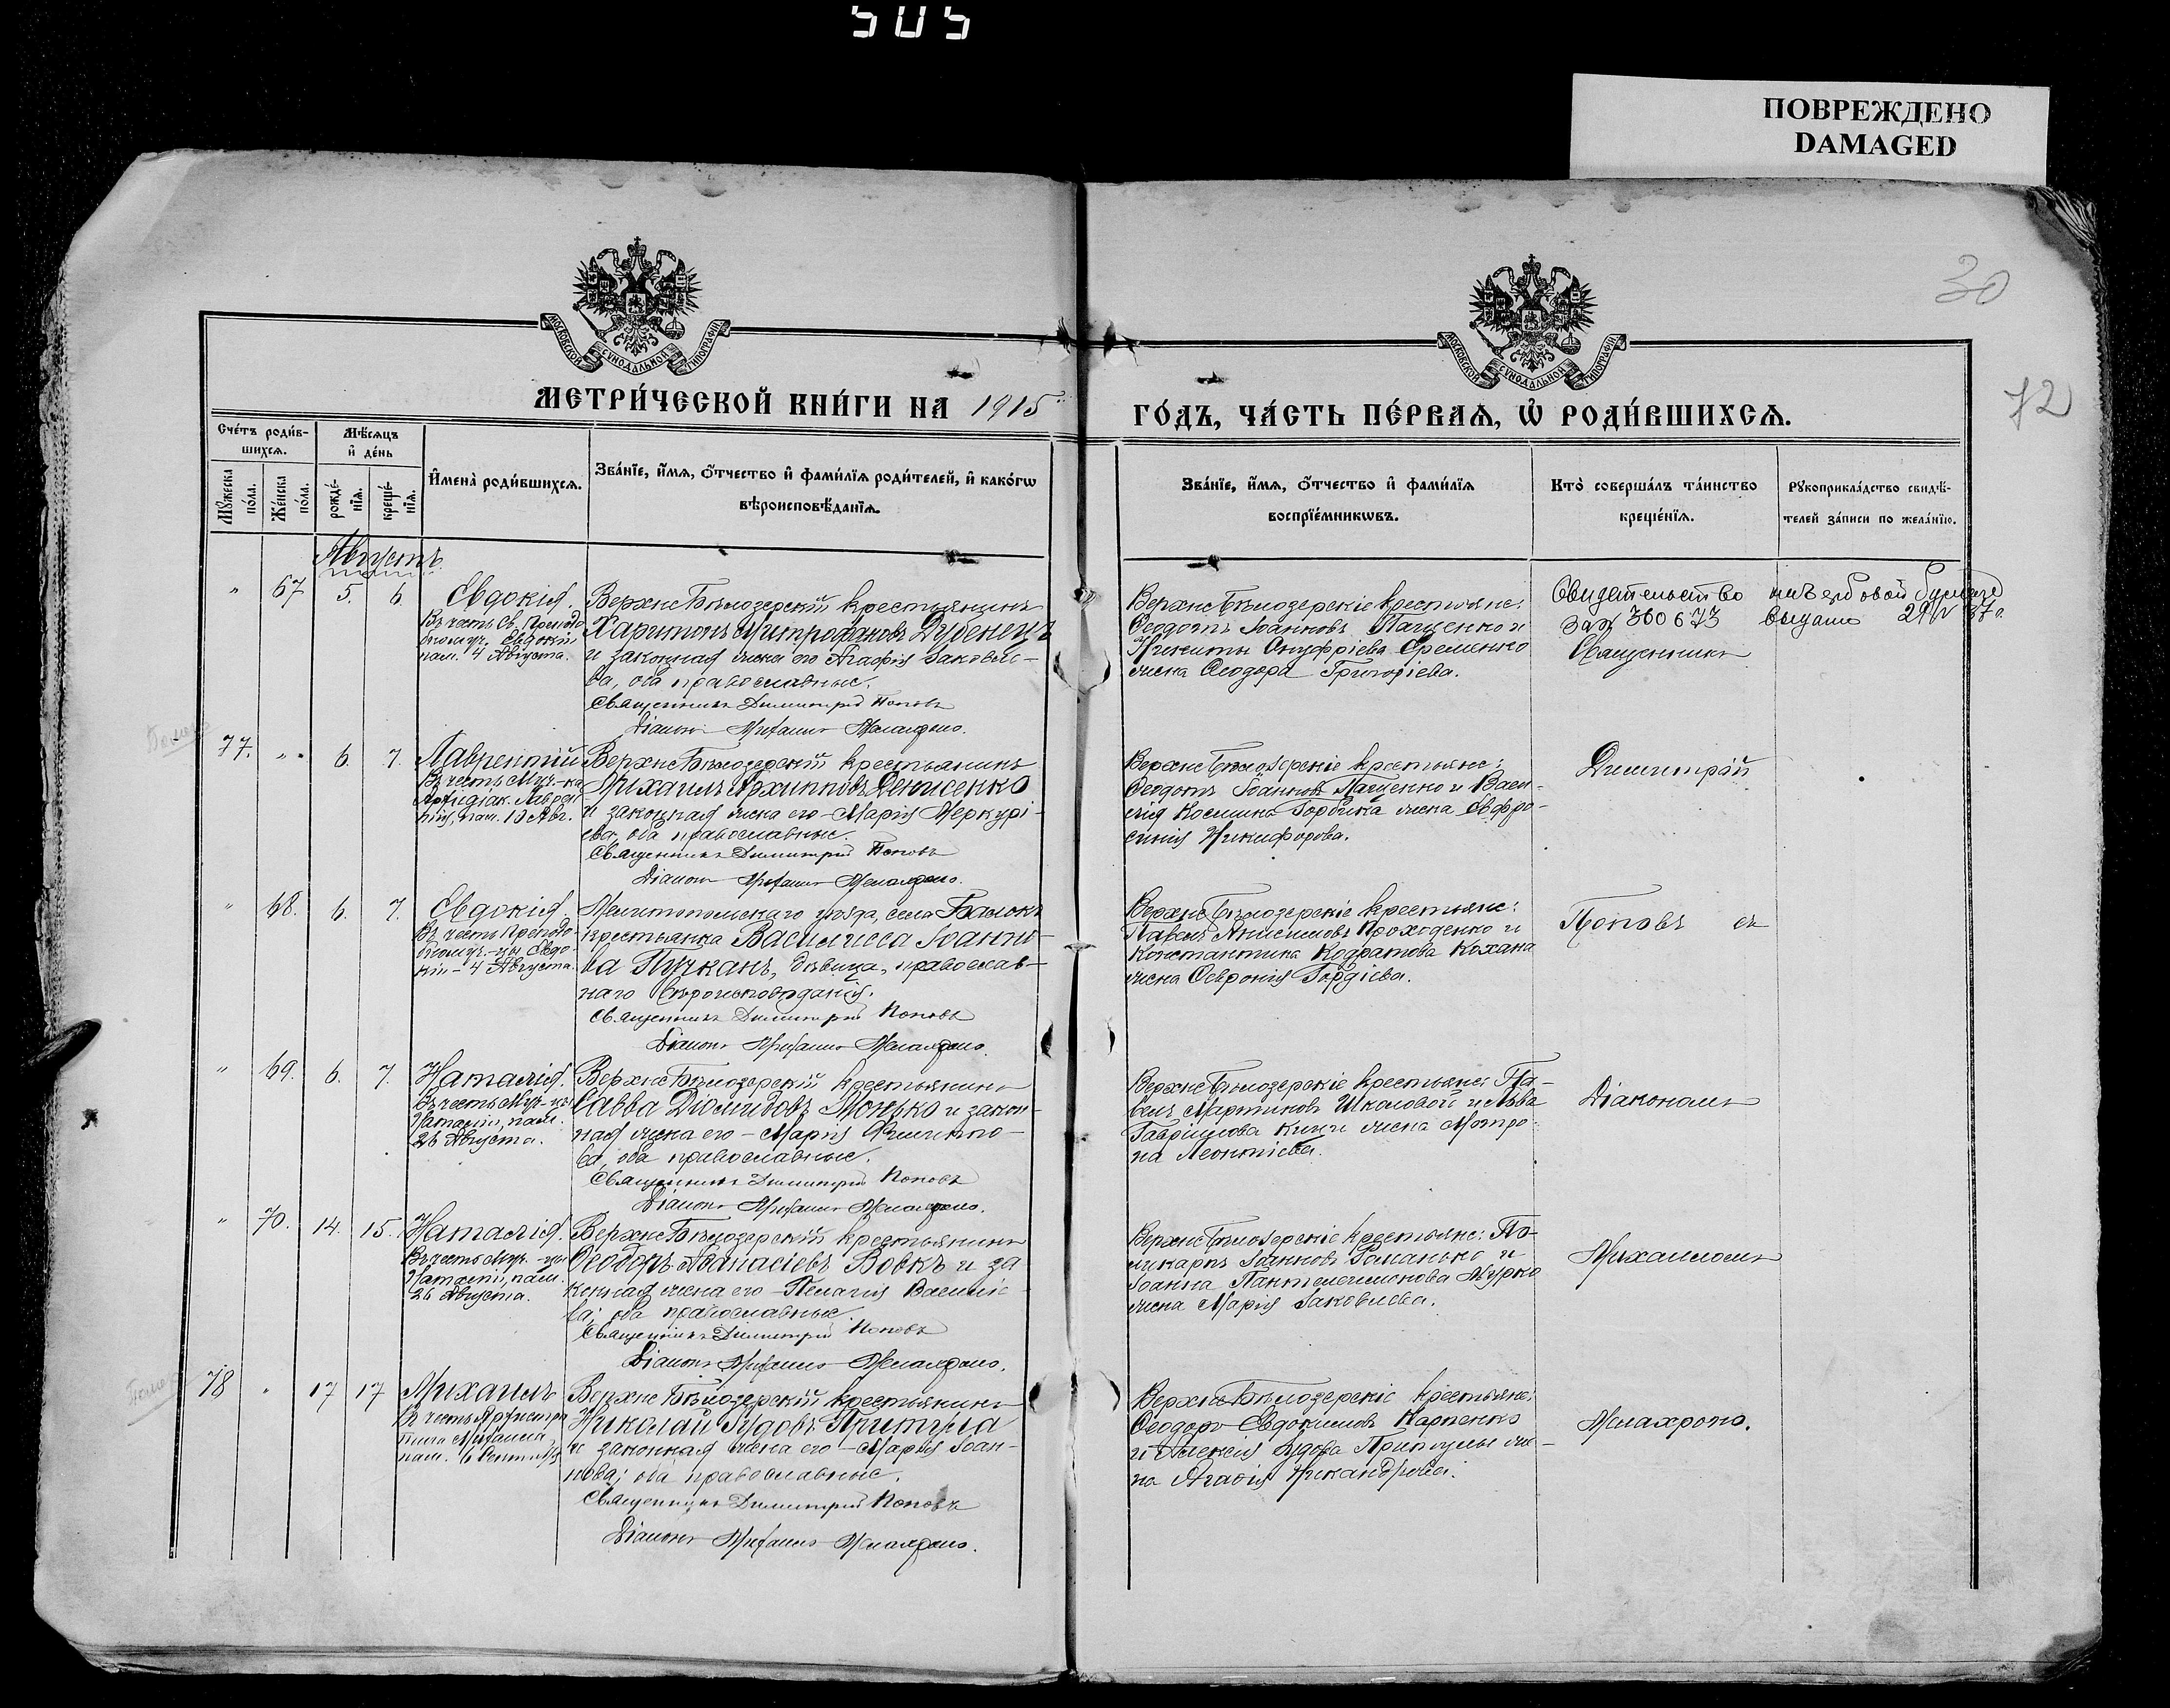 505
ПОВРЕЖДЕНО
DAMAGED
30
72
МОСКОВСКОЙ СѴНОДАЛЬНОЙ ТИПОГРАФІИ
МОСКОВСКОЙ СѴНОДАЛЬНОЙ ТИПОГРАФІИ
МЕТРИ́ЧЕСКОЙ КНИ́ГИ НА 1915
ГО́ДЪ, ЧА́СТЬ ПЕ́РВАЯ, Ѡ҆ РОДИ́ВШИХСЯ.
Сче́тъ роди́в-
шихся.
Мѣ́сяцъ
и҆ де́нь
Мꙋ́жеска по́ла.
Же́нска по́ла.
рожде́-
нїя.
креще́-
нїя.
И҆мена̀ роди́вшихся.
Зва́нїе, и҆́мя, ѻ҆́тчество и҆ фами́лїя роди́телей, и҆ како́гѡ
вѣроисповѣ́данїя.
Зва́нїе, и҆́мя, ѻ҆́тчество и҆ фами́лїя
воспрїе́мникѡвъ.
Кто̀ соверша́лъ та́инство
креще́нїя.
Рꙋкоприкла́дство свидѣ́-
телей за́писи по жела́нїю.
Августъ.
" 67 5. 6.
Евдокія.
Въ честь св. Преподо
бномуч. Евдокіи
пам. 4 Августа.
Верхне Бѣлозерскій крестьянинъ
Харитонъ Митрофановъ Дубенецъ
и законная жена его Агафія Іаковле-
ва, оба православные.
Священникъ Димитрій Поповъ
Діаконъ Михаилъ
Верхне Бѣлозерскіе крестьяне:
Ѳеодотъ Іоанновъ Пащенко и
Никиты Онуфріева Еременко
жена Ѳеодора Григоріева.
Свидетельство на гербовой бумаге
за № 360673 выдано
Священникъ
77. " 6. 7.
Лаврентій
Въ честь Муч-ка
Архидіак. Лаврен
тія, пам. 10 Авг.
Верхне Бѣлозерскій крестьянинъ
Михаилъ Архиповъ Денисенко
и законная жена его - Марія Меркурі-
ева, оба православные.
Священникъ Димитрій Поповъ
Діаконъ Михаилъ
Верхне Бѣлозерскіе крестьяне:
Ѳеодотъ Іоанновъ Пащенко и Васи-
лія Космина Горбика жена Евфро-
синія Никифорова.
Димитрій
" 68. 6. 7.
Евдокія
Въ честь Преподо-
бномуч-цы Евдо-
кіи - 4 Августа.
Мелитопольскаго уѣзда, села Балокъ
крестьянка Василисса Іоанно-
ва Пужкань, дѣвица, православ-
наго вѣроисповѣданія.
Священникъ Димитрій Поповъ
Діаконъ Михаилъ
Верхне Бѣлозерскіе крестьяне:
Павелъ Анисимовъ Проходенко и
Константина Кодратова Кохана
жена Ѳевронія Гордіева.
Поповъ съ
" 69. 6. 7.
Наталія.
Въ честь Муч-цы
Наталіи, пам.
26 Августа.
Верхне Бѣлозерскій крестьянинъ
Савва Діомидовъ Монько и закон-
ная жена его - Марія Филиппо-
ва, оба православные.
Священникъ Димитрій Поповъ
Діаконъ Михаилъ
Верхне Бѣлозерскіе крестьяне: Па-
велъ Мартиновъ Школовой и Льва
Гавріилова жена Матро-
на Леонтіева.
Діакономъ
" 70. 14. 15.
Наталія
Въ честь Муч-цы
Наталіи, пам.
26 Августа.
Верхне Бѣлозерскій крестьянинъ
Ѳеодоръ Аѳанасіевъ Вовкъ и за
конная жена его - Пелагія Василіе-
ва; оба православные.
Священникъ Димитрій Поповъ
Діаконъ Михаилъ
Верхне Бѣлозерскіе крестьяне: По-
ликарпъ Іоанновъ Романько и
Іоанна Пантелеимонова Мурко
жена Марія Іаковлева.
Михаиломъ
78 " 17 17
Михаилъ
Въ честь Архистра
тига Михаила
пам. 6 Сентября
Верхне Бѣлозерскій крестьянинъ
Николай Іудовъ Притула
и законная жена его - Марія Іоан-
нова; оба православные.
Священникъ Димитрій Поповъ
Діаконъ Михаилъ
Верхне Бѣлозерскіе крестьяне:
Ѳеодоръ Евдокимовъ Карпенко
и Алексія Іудова Притулы же-
на Агафія Никандрова.